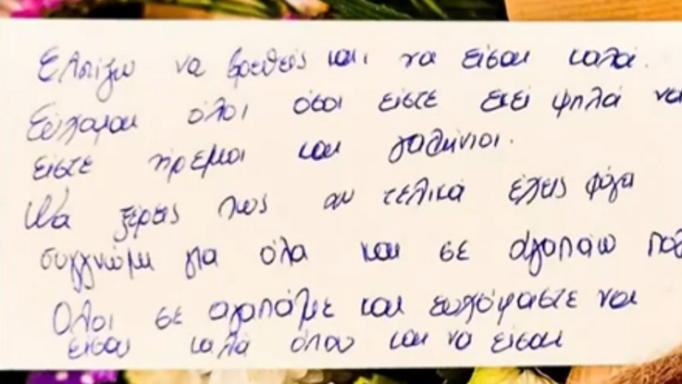 Ελπίζω να βρεθείς και να είσαι καλά.
Εύχομαι όλοι όσοι είστε εκεί ψηλά να
είστε ήρεμοι και γαλήνιοι.
Να ξέρεις πως αν τελικά έχεις φύγει
συγγνώμη για όλα και σε αγαπάω πο
Όλοι σε αγαπάμε και ευχόμαστε να
είσαι καλά όπου και να είσαι